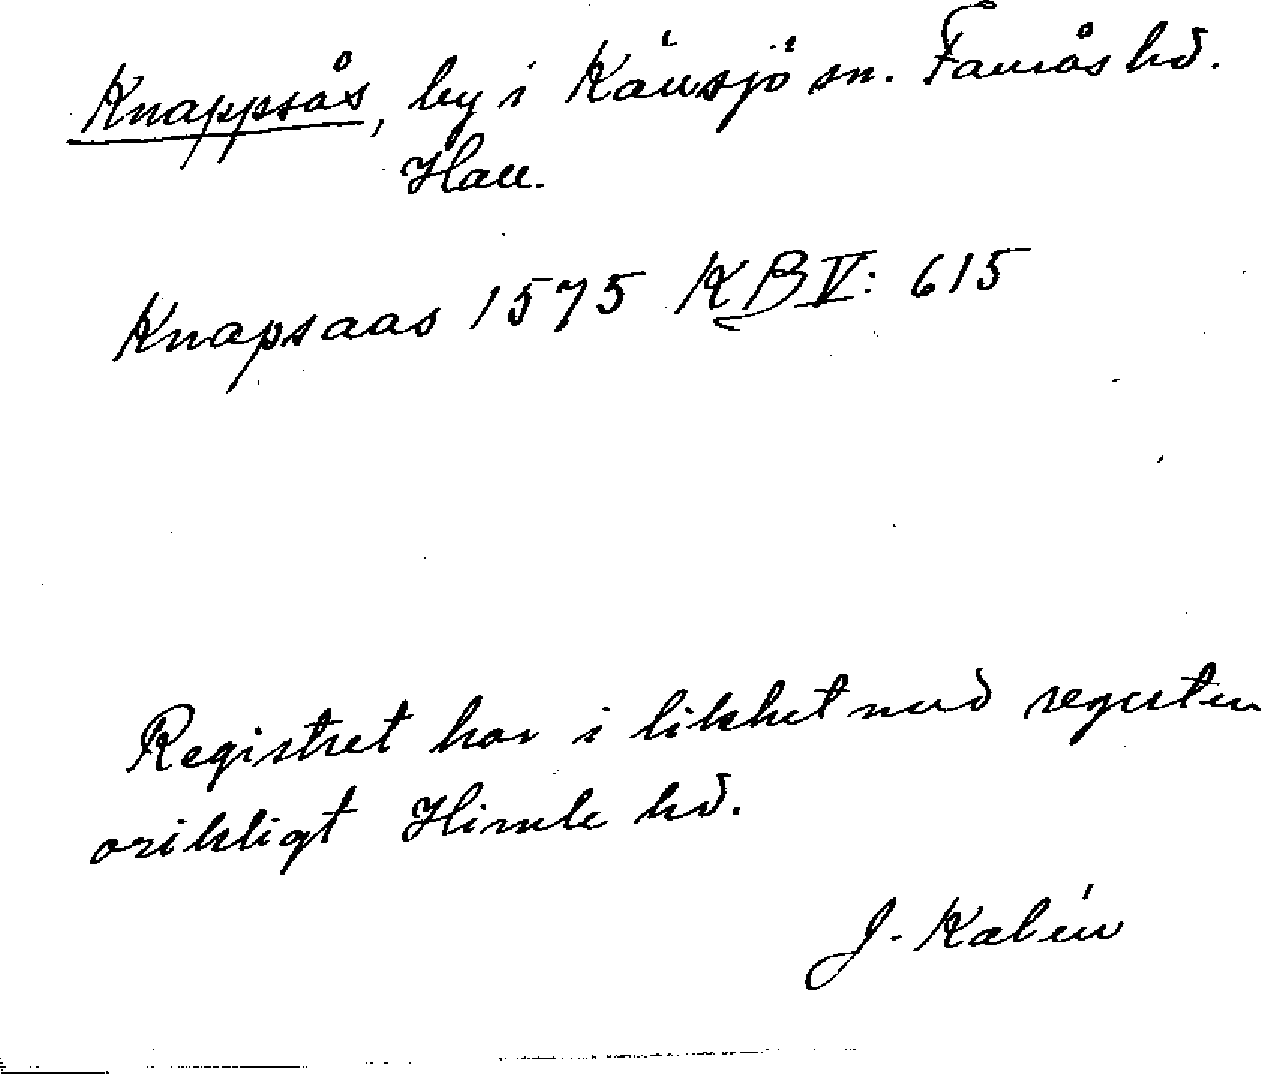 Knappsås, by i Känsjö sn. Faurås hd.
Hall.
Knapsaas 1575 KB V: 615
Registret har i likhet med regesten
oriktigt Himle hd.
J. Kalén